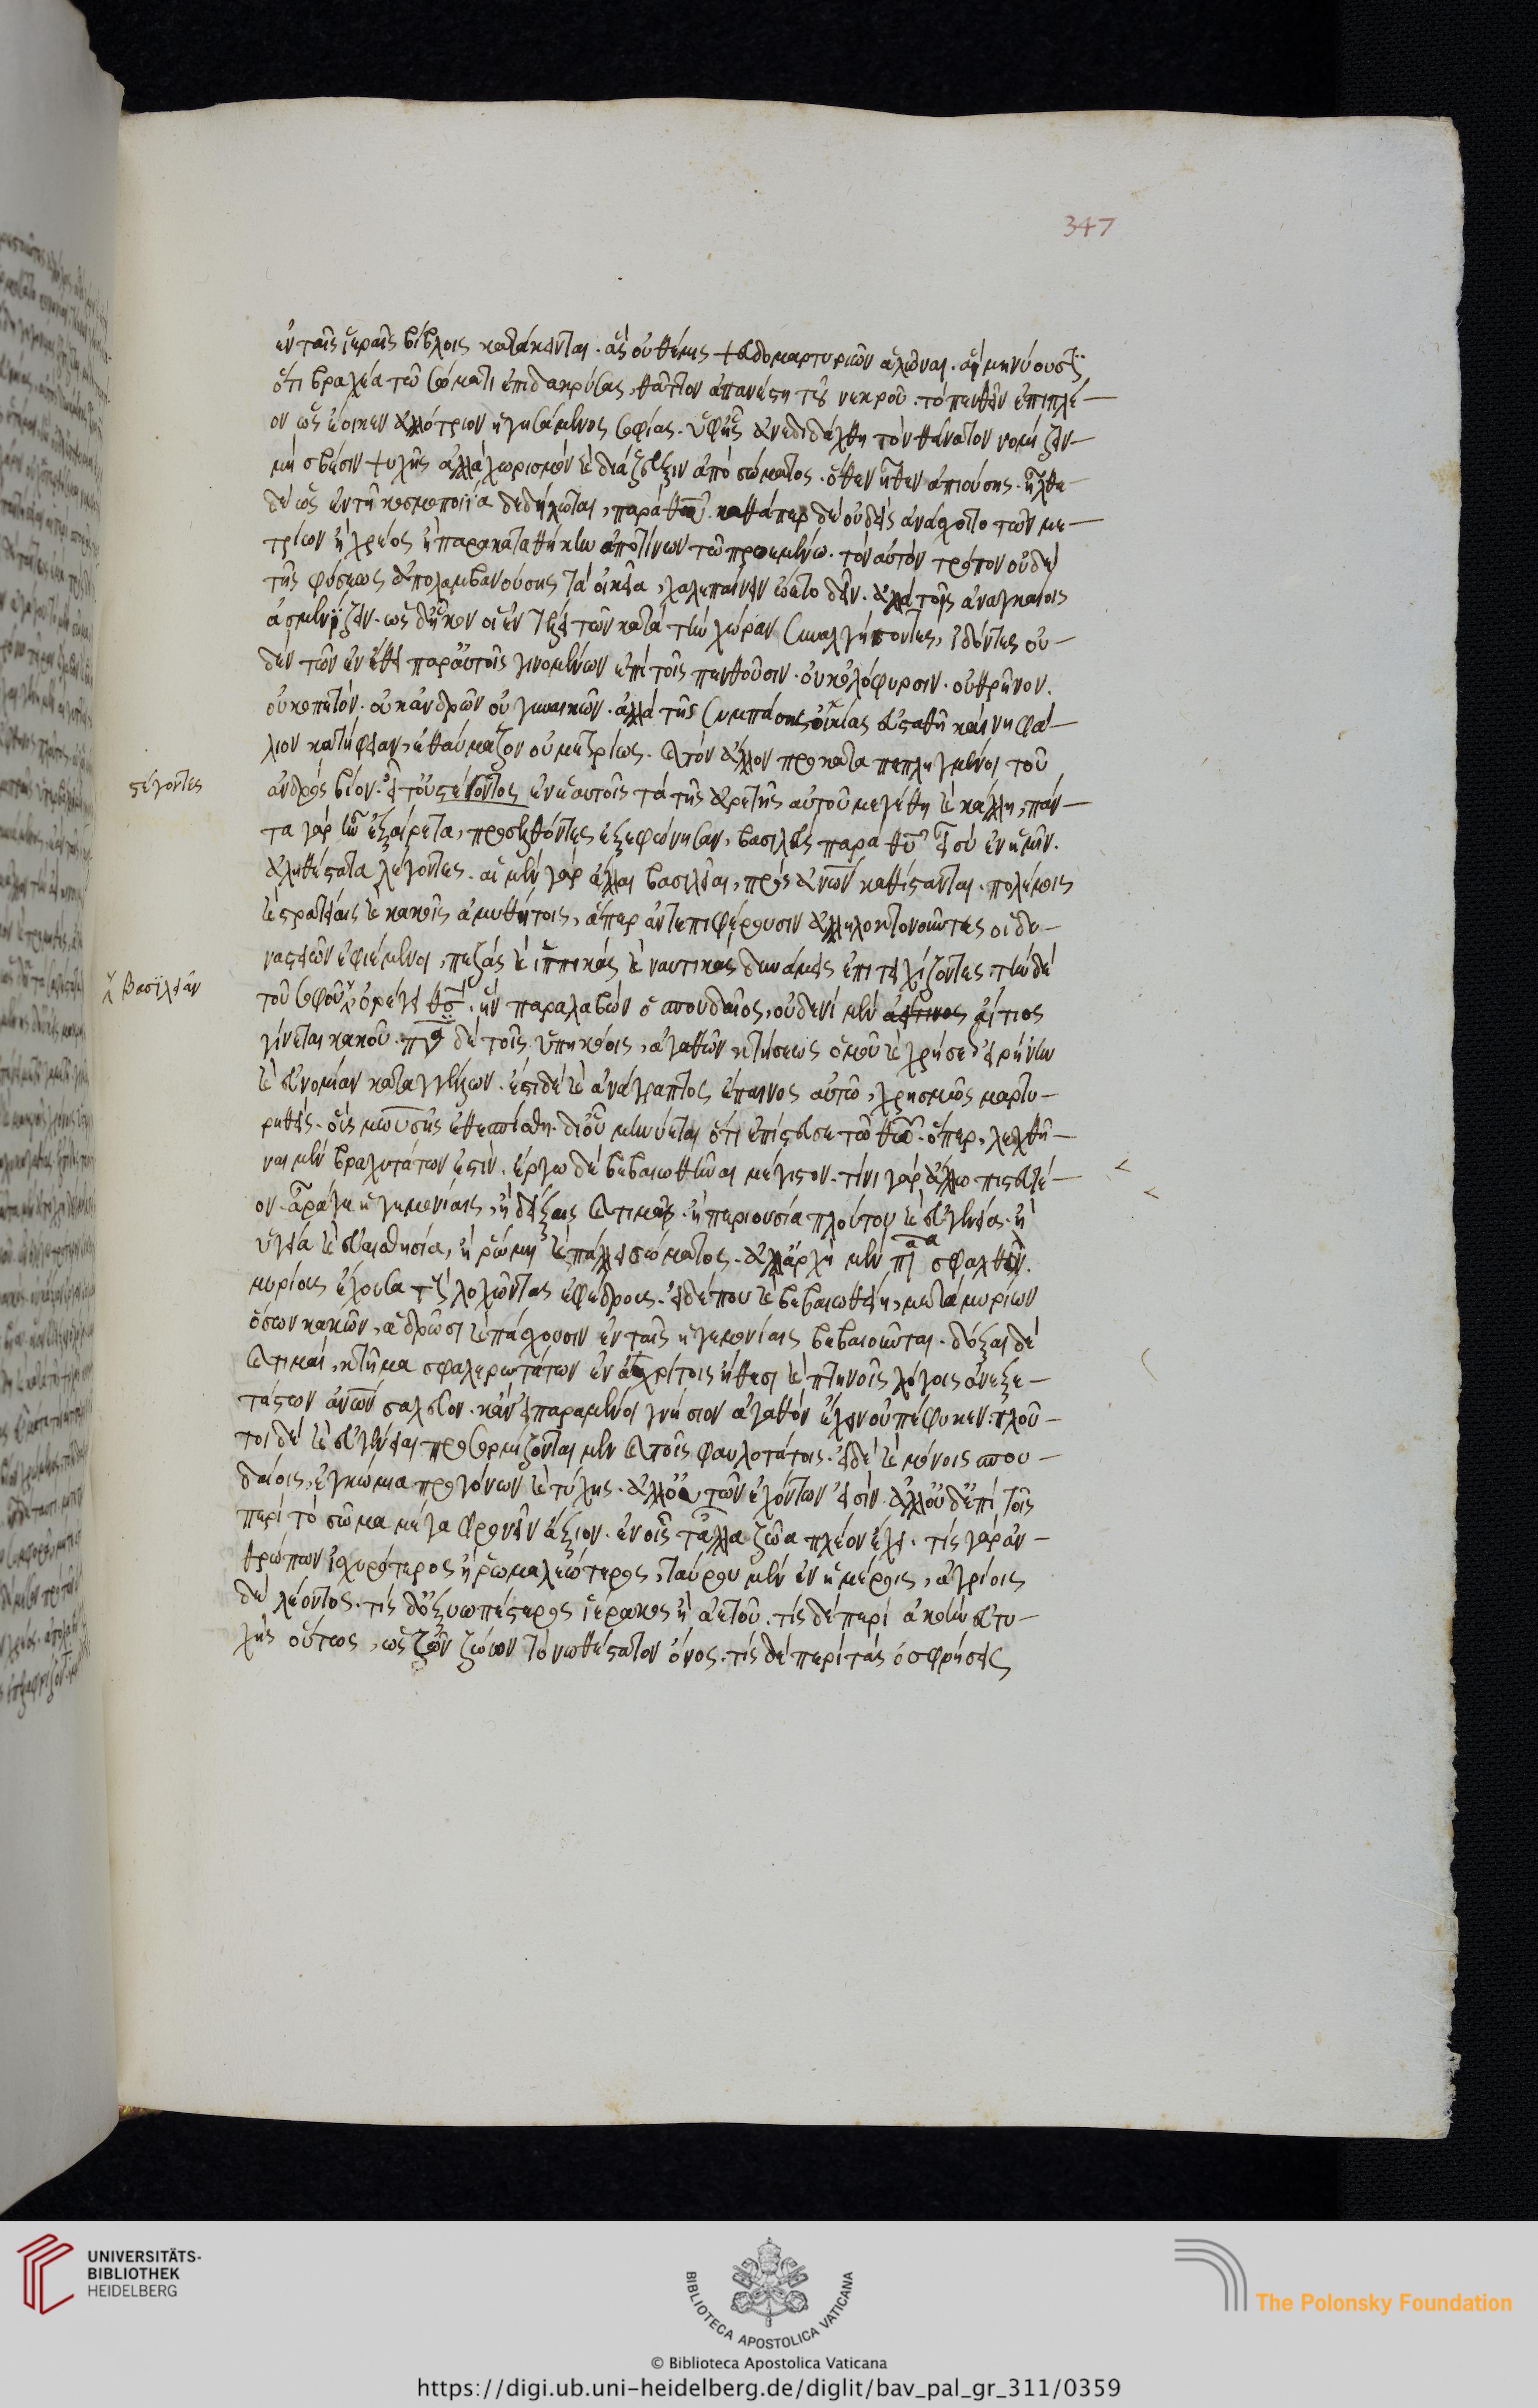 ἐν ταῖς ἱεραῖς βίβλοις κατάκεινται. ἃς οὐ θέμις ψευδομαρτυριῶν ἁλῶναι. αἳ μηνύουσιν
ὅτι βραχέα τῶ σώματι ἐπιδακρύσας, θᾶττον ἀπανέστη τοῦ νεκροῦ. τὸ πενθεῖν ἐπιπλέ-
ον ὡς ἔοικεν ἀλλότριον ἡγησάμενος σοφίας. ὑφ' ἧς ἀνεδιδάχθη τὸν θάνατον νομίζειν
μὴ σβέσιν ψυχῆς ἀλλὰ χωρισμὸν καὶ διάζευξιν ἀπὸ σώματος. ὅθεν ἦλθεν ἀπιούσης. ἦλθε
δὲ ὡς ἐν τῆ κοσμοποιΐα δεδήλωται, παρὰ θεοῦ. καθάπερ δὲ οὐδεὶς ἀνάχθοιτο τῶν με-
τρίων ἢ χρέος ἢ παρακαταθήκην ἀποτίνων τῶ προεμένω. τὸν αὐτὸν τρόπον οὐδὲ
τῆς φύσεως ἀπολαμβανούσης τὰ οἰκεῖα, χαλεπαίνειν ὤετο δεῖν. ἀλλὰ τοῖς ἀναγκαίοις
ἀσμενίζειν. ὡς δ' ἧκον οἱ ἐν τέλει τῶν κατὰ τὴν χώραν συναλγήσοντες, ἰδόντες οὐ-
δὲν τῶν ἐν ἔθει παρ' αὐτοῖς γινομένων ἐπὶ τοῖς πενθοῦσιν. οὐκ ὀλόφυρσιν. οὐ θρῆνον.
οὐ κοπετόν. οὐκ ἀνδρῶν οὐ γυναικῶν. ἀλλὰ τῆς συμπάσης οἰκίας εὐσταθῆ καὶ νηφά-
λιον κατήφειαν, ἐθαύμαζον οὐ μετρίως. καὶ τὸν ἄλλον προκαταπεπληγμένοι τοῦ
ἀνδρὸς βίον. εἶτ' οὐ στέγοντος ἐν ἑαυτοῖς τὰ τῆς ἀρετῆς αὐτοῦ μεγέθη καὶ κάλλη, πάν-
στέγοντες
τα γὰρ ἦν ἐξαίρετα, προσελθόντες ἐξεφώνησαν, βασιλεὺς παρὰ θεοῦ εἶ σὺ ἐν ἡμῖν.
ἀληθέστατα λέγοντες. αἱ μὲν γὰρ ἄλλαι βασιλεῖαι, πρὸς ἀνων καθίστανται. πολέμοις
καὶ στρατείαις καὶ κακοῖς ἀμυθήτοις, ἅπερ ἀντεπιφέρουσιν ἀλληλοκτονοῦντες οἱ δυ-
ναστειῶν ἐφιέμενοι, πεζὰς καὶ ἱππικὰς καὶ ναυτικὰς δυνάμεις ἐπιτειχίζοντες. τὴν δὲ
βασιλείαν
τοῦ σοφοῦ ὀρέγει θς. ἣν παραλαβὼν ὁ σπουδαῖος, οὐδενὶ μὲν αἴτιος
γίνεται κακοῦ. πᾶσι δὲ τοῖς ὑπηκόοις, ἀγαθῶν κτήσεως ὁμοῦ καὶ χρήσεως εἰρήνην
καὶ εὐνομίαν καταγγέλλων. ἔστι δὲ καὶ ἀνάγραπτος ἔπαινος αὐτῶ, χρησμοῖς μαρτυ-
ρηθεὶς. οὓς μωυσῆς ἐθεσπίσθη. δι' οὗ μηνύεται ὅτι ἐπίστευσε τῶ θεῶ. ὅπερ, λεχθῆ-
ναι μὲν βραχυτάτων ἐστὶν. ἔργω δὲ βεβαιωθῆναι μέγιστον. τίνι γὰρ ἄλλω πιστευτέ-
ον. ἆρά γε ἡγεμονίαις, ἢ δόξαις καὶ τιμαῖς. ἢ περιουσία πλούτου καὶ εὐγενεία. ἢ
ὑγεία καὶ εὐαισθησία, ἢ ῥώμη καὶ κάλλει σώματος. ἀλλ' ἀρχὴ μὲν πᾶσα σφαλερὸν.
μυρίους ἔχουσα τοὺς λοχῶντας ἐφέδρους. εἰ δέ που καὶ βεβαιωθείη, μετὰ μυρίων
ὅσων κακῶν, ἃ δρῶσι καὶ πάσχουσιν ἐν ταῖς ἡγεμονίαις βεβαιοῦται. δόξαι δὲ
καὶ τιμαί, κτῆμα σφαλερώτατον ἐν ἀκρίτοις ἤθεσι καὶ πτηνοῖς λόγοις ἀνεξε-
τάστων ἀνων σαλεῦον. κἂν εἰ παραμένοι γνήσιον ἀγαθὸν ἔχειν οὐ πέφυκεν. πλοῦ-
τοι δὲ καὶ εὐγένειαι προσορμίζονται μὲν καὶ τοῖς φαυλοτάτοις. εἰ δὲ καὶ μόνοις σπου-
δαίοις, ἐγκώμια προγόνων καὶ τύχης. ἀλλ' οὐ τῶν ἐχόντων εἰσίν. ἀλλ' οὐδ' ἐπὶ τοῖς
περὶ τὸ σῶμα μέγα φρονεῖν ἄξιον. ἐν οἷς τἄλλα ζῶα πλέον ἔχει. τίς γὰρ ἀν-
θρώπων ἰσχυρότερος ἢ ῥωμαλεώτερος, ταύρου μὲν ἐν ἡμέροις, ἀγρίοις
δὲ λέοντος. τίς δ' ὀξυωπέστερος ἱέρακος ἢ ἀετοῦ. τίς δὲ περὶ ἀκοὴν εὐτυ-
χὴς οὕτως, ὡς ζώων τὸ νωθέστατον ὄνος. τίς δὲ περὶ τὰς ὀσφρήσεις
347
UNIVERSITÄTS-
BIBLIOTHEK
HEIDELBERG
BIBLIOTECA APOSTOLICA VATICANA
© Biblioteca Apostolica Vaticana
The Polonsky Foundation
https://digi.ub.uni-heidelberg.de/diglit/bav_pal_gr_311/0359